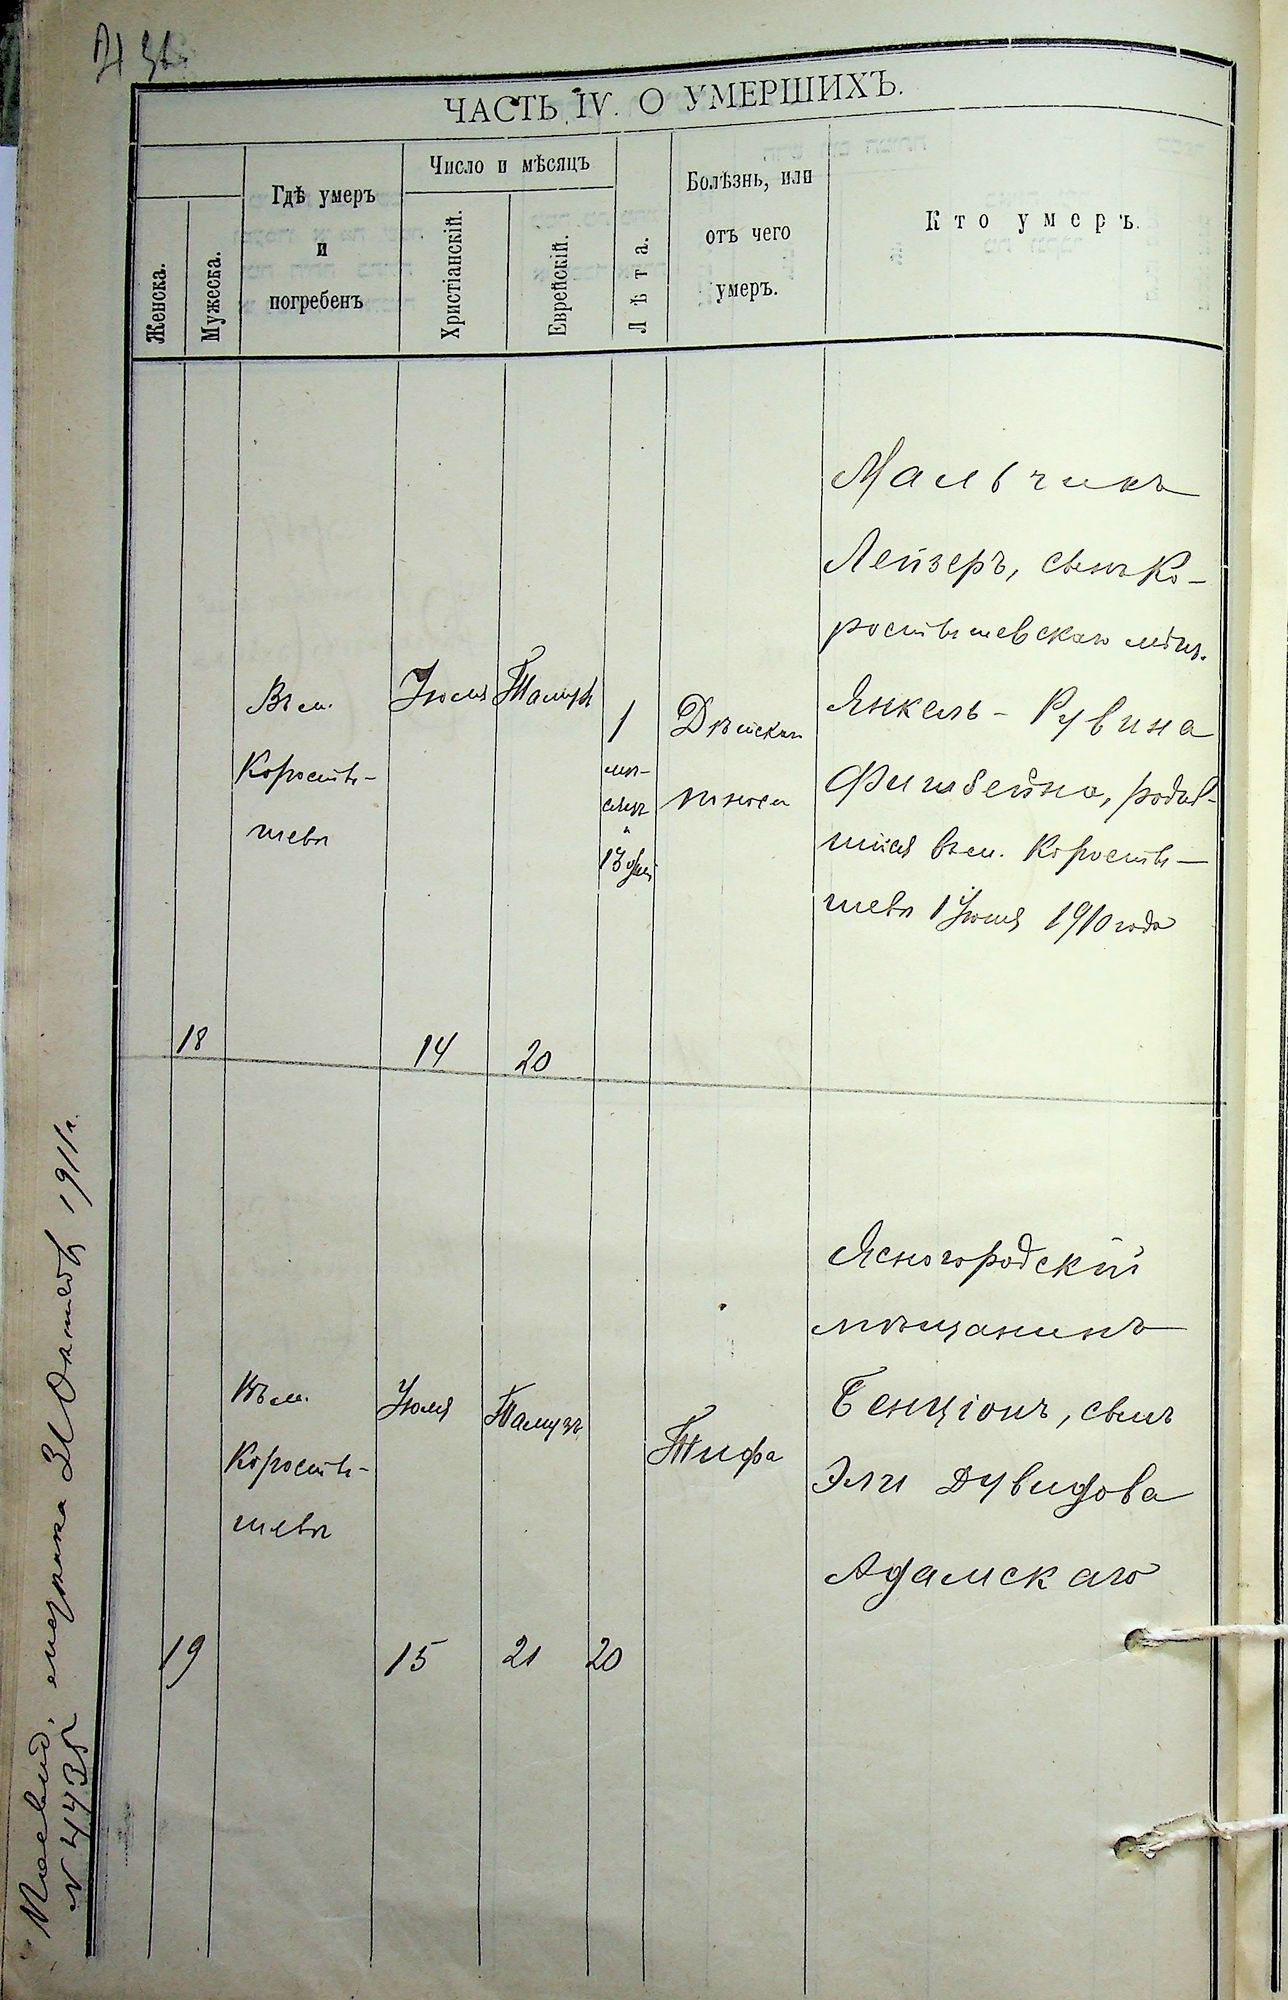 ЧАСТЬ IV. О УМЕРШИХЪ.
Женска.
Мужеска.
Гдѣ умеръ
и
погребенъ
Число и мѣсяцъ
Христіанскій.
Еврейскій.
Лѣта.
Болѣзнь, или
отъ чего
умеръ.
Кто умеръ.
18
Въ м.
Коросты-
шевѣ
Іюля
14
Тамузъ
20
1
мѣ-
сяцъ
и
13 дней
Дѣтская
Мальчикъ
Лейзеръ, сынъ Ко-
ростышевскаго мѣщ.
Янкель-Рувина
Фишбейна, родив-
шійся въ м. Коросты-
шевѣ 1 Іюня 1910 года
19
Въ м.
Коросты-
шевѣ
Іюля
15
Тамузъ
21
20
Тифа
Ясногородскій
мѣщанинъ
Бенціонъ, сынъ
Эли Дувидова
Адамскаго
метрика 31 Октября 1911 г.